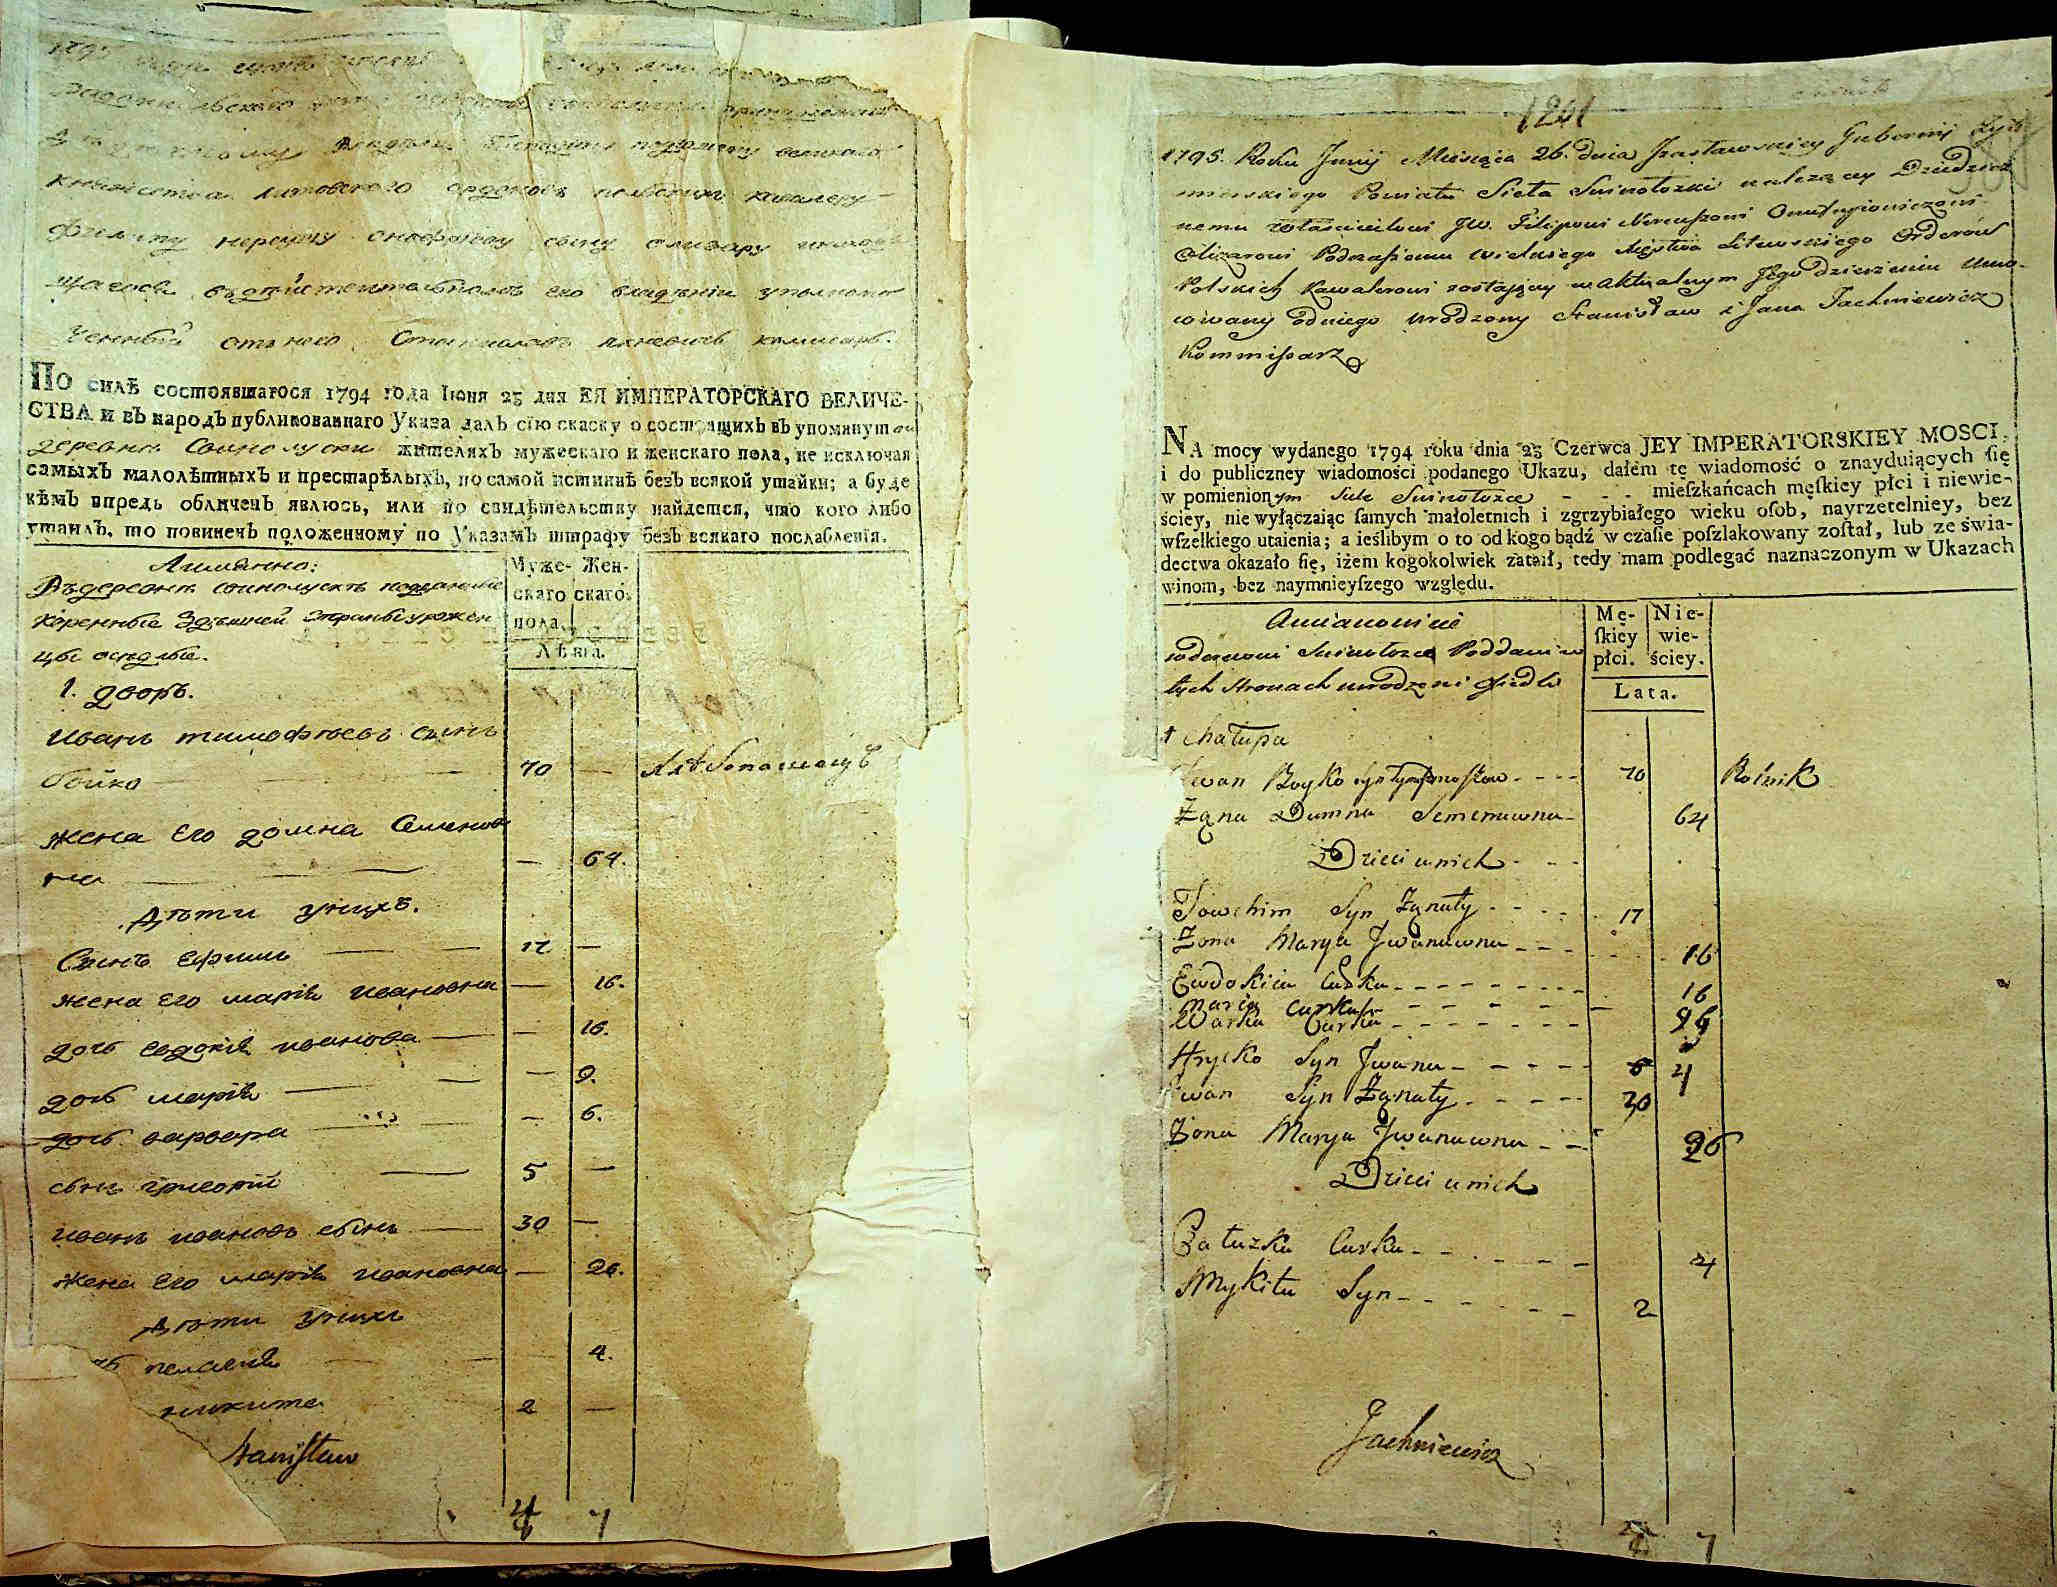 1795
Радомысльскаго
княжества литовского орденовъ полскихъ кавалеру
Филипу нереушу онофріеву сыну олизару
въдѣйствительномъ его владѣніи уполномо
ченный отъ него Станиславъ яхневичь комисаръ.
ПО силѣ состоявшагося 1794 года Іюня 23 дня ЕЯ ИМПЕРАТОРСКАГО ВЕЛИЧЕ-
СТВА и въ народъ публикованнаго Указа далъ сію скаску о состоящихъ въ упомянутой
деревни Свинолуки жителяхъ мужескаго и женскаго пола, не исключая
самыхъ малолѣтныхъ и престарѣлыхъ, по самой истиннѣ безъ всякой утайки; а буде
кѣмъ впредь обличенъ явлюсь, или по свидѣтельству найдется, что кого либо
утаилъ, то повиненъ положенному по Указамъ штрафу безъ всякаго послабленія.
Аимянно:
Муже- Жен-
скаго скаго
пола.
Лѣта.
Въдеревнѣ свинолукѣ подданные
коренные здѣшней стороны урожен
цы оседлые.
1. дворъ.
Иванъ тимофѣевъ сынъ
бойко 70 — Хлѣбопашецъ
жена Его домна Семенов
на — 64.
Дѣти унихъ.
Сынъ ефимъ 17 —
жена его марія ивановна — 16.
дочь евдокія иванова — 16.
дочь марія — 9.
дочь варвара — 6.
сынъ григорій 5 —
иванъ ивановъ сынъ 30 —
жена Его марія ивановна — 26.
Дѣти унихъ
пелагея 4.
никита 2 —
Stanisław
4 7
1261
1795. Roku Junij Miesiąca 26. dnia Izasławskiey Gubernij Żyto
mierskiego Powiatu Sieła Swinołozki należący Dziedzicz
nemu właścicielowi JW. Filipowi Nereuszowi Onufryiewiczowi
Olizarowi Podczaszemu wielkiego Xięstwa Litewskiego Orderów
Polskich Kawalerowi zostający w aktualnym Jego dzierżeniu Umo-
cowany odniego urodzony Stanisław i Jana Jachniewicz
Kommissarz
NA mocy wydanego 1794 roku dnia 23 Czerwca JEY IMPERATORSKIEY MOSCI,
i do publiczney wiadomości podanego Ukazu, dałem tę wiadomość o znayduiących ſię
w pomienionym Siele Swinołozce - - - mieſzkańcach męſkiey płci i niewie-
ściey, nie wyłączaiąc ſamych małoletnich i zgrzybiałego wieku oſob, nayrzetelniey, bez
wſzelkiego utaienia; a ieślibym o to od kogo bądź w czaſie poſzlakowany zoſtał, lub ze świa-
dectwa okazało ſię, iżem kogokolwiek zataił, tedy mam podlegać naznaczonym w Ukazach
winom, bez naymnieyſzego względu.
Amianowicie
Mę- Nie-
ſkiey wie-
płci. ściey.
Lata.
wderewni Swinołozce Poddani w
tych stronach urodzeni osiedli
1 Chałupa
Iwan Boyko syn 70 Rolnik
Żona Dumna Semenuwna 64
Dzieci unich
Jowchim Syn Żonaty 17
Żona Marya Iwanuwna 16
Ewdokia Curka 16
Maria Curka 9
Warka Curka 6
Hrycko Syn Iwana
Iwan Syn Żonaty 30
Żona Marya Iwanuwna 26
Dzieci unich
Pałuzka Curka 4
Mykita Syn 2
Jachniewicz
4 7